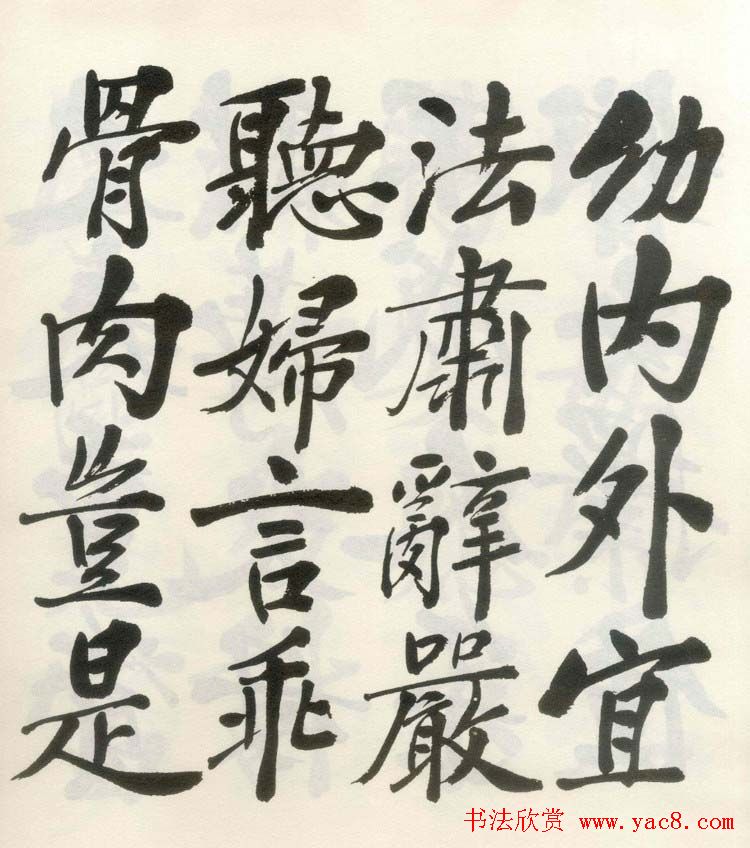 幼内外宜
法肅辭嚴
聽婦言乖
骨肉豈是
书法欣赏 www.yac8.com